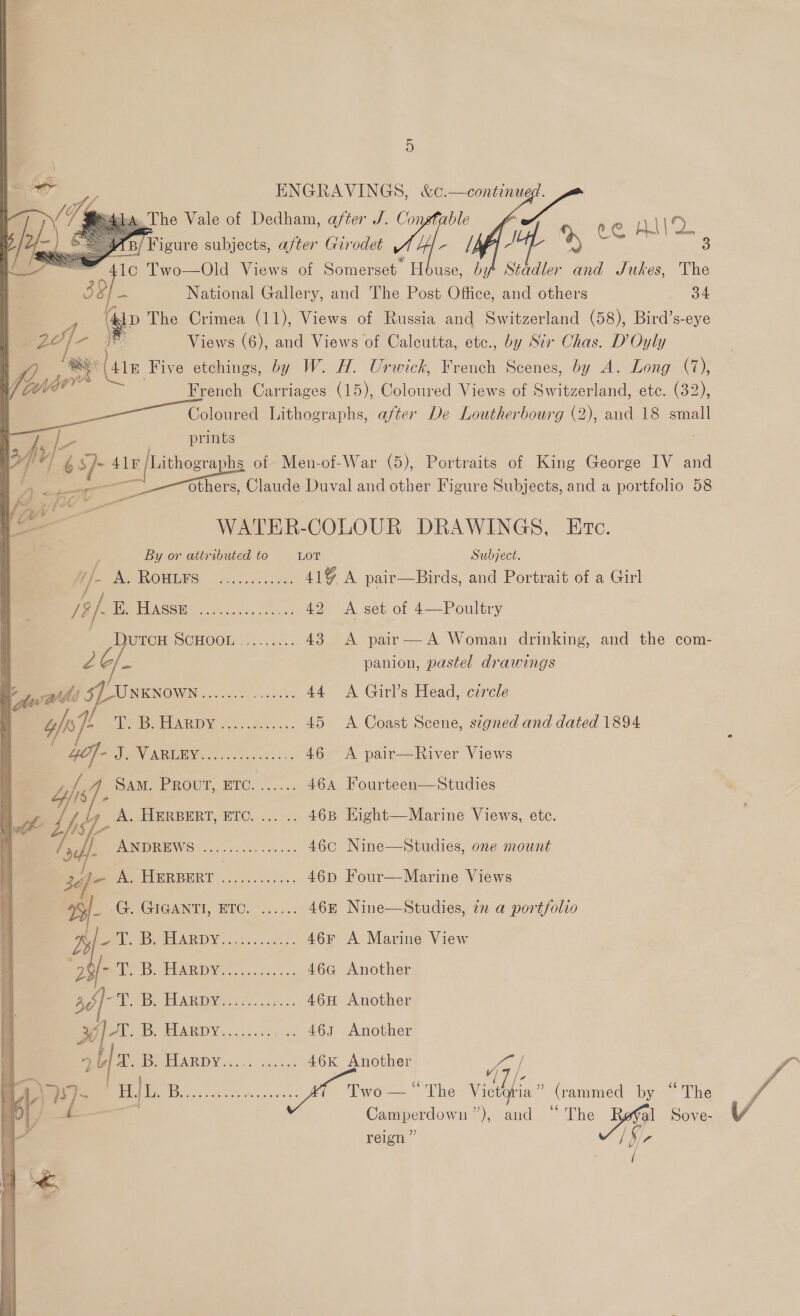 5
ENGRAVINGS, &c.—continued.
The Vale of Dedham, after J. Constable
Figure subjects, after Girodet 3
41c Two—Old Views of Somerset House, by Stadler and Jukes, The
National Gallery, and The Post Office, and others 34
The Crimea (11), Views of Russia and Switzerland (58), Bird's-eye
Views (6), and Views of Calcutta, etc., by Sir Chas. D'Oyly
41E Five etchings, by W. H. Urwick, French Scenes, by A. Long (7),
French Carriages (15), Coloured Views of Switzerland, etc. (32),
Coloured Lithographs, after De Loutherbourg (2), and 18 small
prints
41F Lithographs of Men-of-War (5), Portraits of King George IV and
others, Claude Duval and other Figure Subjects, and a portfolio 58
WATER-COLOUR DRAWINGS, Etc.
By or attributed to LOT Subject.
A. ROHLFS ............ 41G A pair—Birds, and Portrait of a Girl
E. HASSE ............ 42 A set of 4—Poultry
DUTCH SCHOOL ......... 43 A pair—A Woman drinking, and the com-
26/- panion, pastel drawings
UNKNOWN ............ 44 A Girl's Head, circle
T. B. HARDY ............ 45 A Coast Scene, signed and dated 1894
J. VARLEY ............ 46 A pair—River Views
SAM. PROUT, ETC. ...... 46A Fourteen—Studies
A. HERBERT, ETC. ...... 46B Eight—Marine Views, etc.
ANDREWS ............ 46C Nine—Studies, one mount
A. HERBERT ............ 46D Four—Marine Views
G. GIGANTI, ETC. ...... 46E Nine—Studies, in a portfolio
T. B. HARDY ............ 46F A Marine View
T. B. HARDY ............ 46G Another
T. B. HARDY ............ 46H Another
T. B. HARDY ............ 46J Another
T. B. HARDY ............ 46K Another
H. L. B. ............ 47 Two—"The Victoria" (rammed by "The
Camperdown"), and "The Royal Sove-
reign"